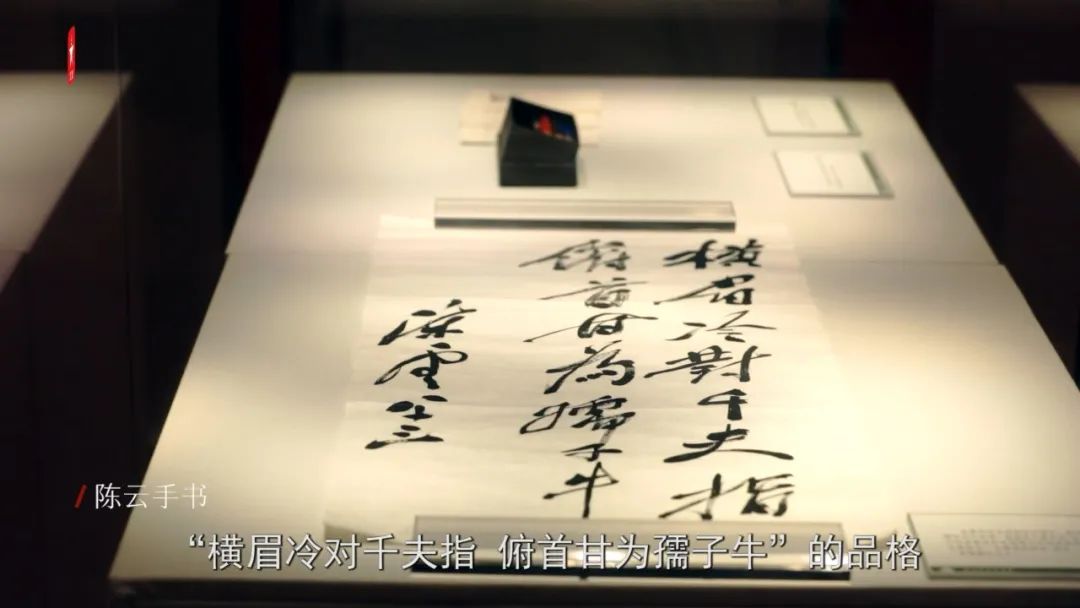 橫眉冷對千夫指
俯首甘為孺子牛
陳雲
陈云手书
“横眉冷对千夫指 俯首甘为孺子牛”的品格